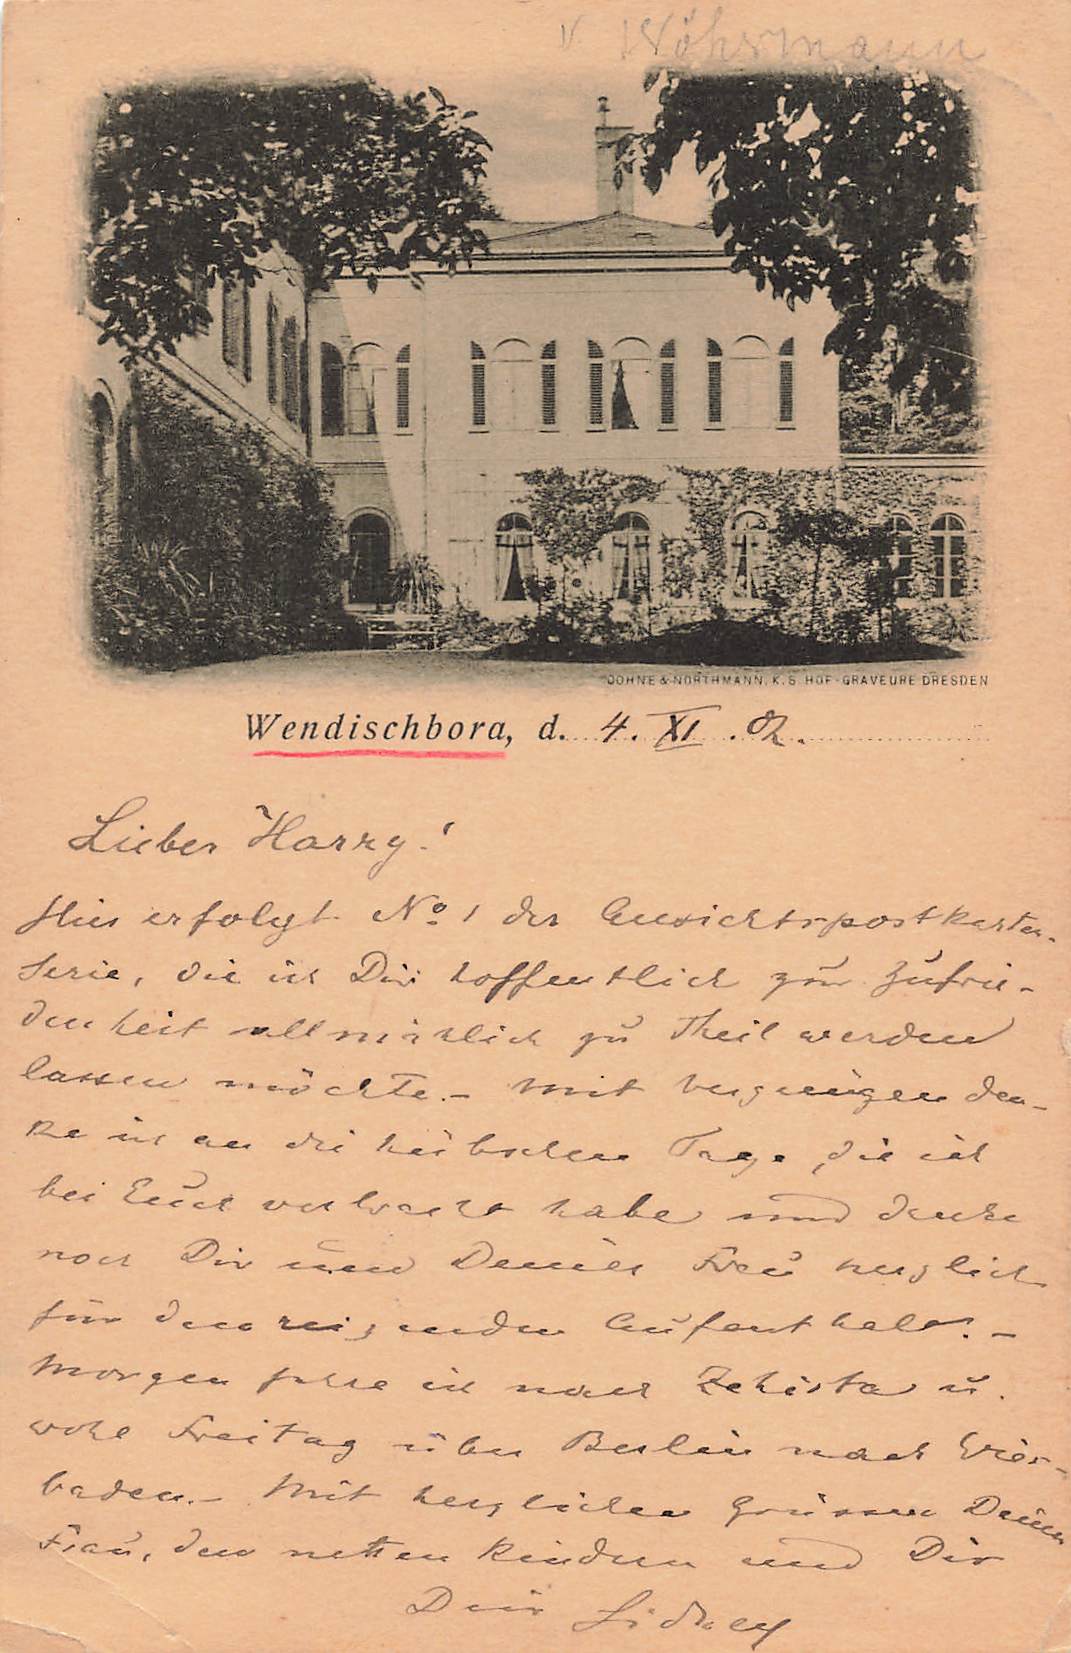 v. Wöhrmann
DOHNE & NORTHMANN, K. S. HOF-GRAVEURE DRESDEN
Wendischbora, d. 4. XI. 02.
Lieber Harry!
Hier erfolgt No 1 der Ansichtspostkarten-
Serie, die ich Dir hoffentlich zur Zufrie-
denheit allmählich zu Theil werden
lassen möchte. – Mit Vergnügen den-
ke ich an die hübschen Tage, die ich
bei Euch verbracht habe und danke
noch Dir und Deiner Frau herzlich
für den reizenden Aufenthalt. –
Morgen fahre ich nach Zehista u.
wohl Freitag über Berlin nach Wies-
baden. – Mit herzlichen Grüssen Deiner
Frau, den netten Kindern und Dir
Dein Sidney